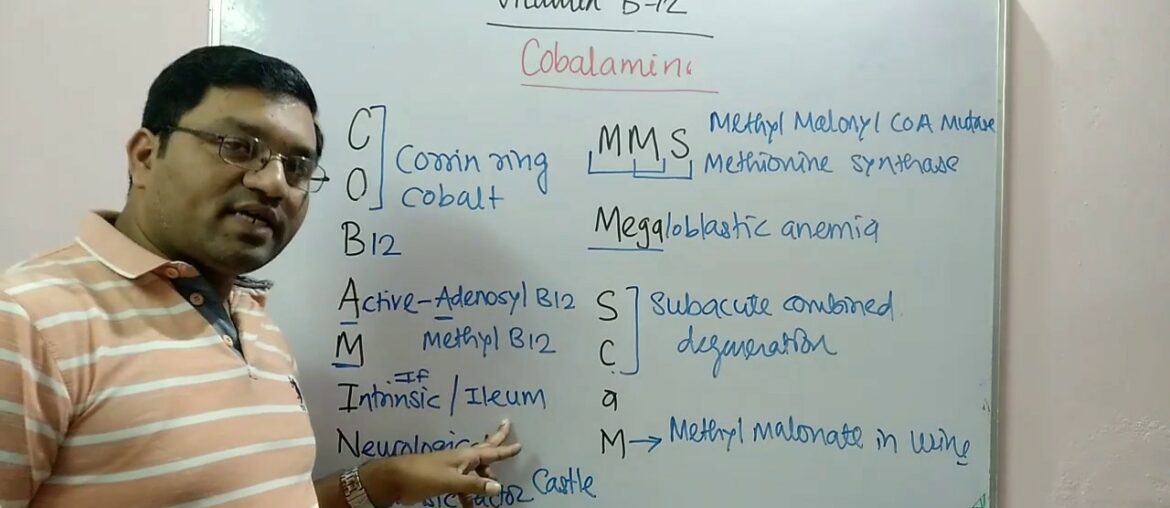 Vitamin B-12
Cobalamin
C
O
Corrin ring
Cobalt
B12
Active-Adenosyl B12
M Methyl B12
IF
Intrinsic / Ileum
Castle
MMS
Methyl Malonyl CoA Mutase
Methionine synthase
Megaloblastic anemia
S
C
Subacute combined
degeneration
a
M → Methyl malonate in urine